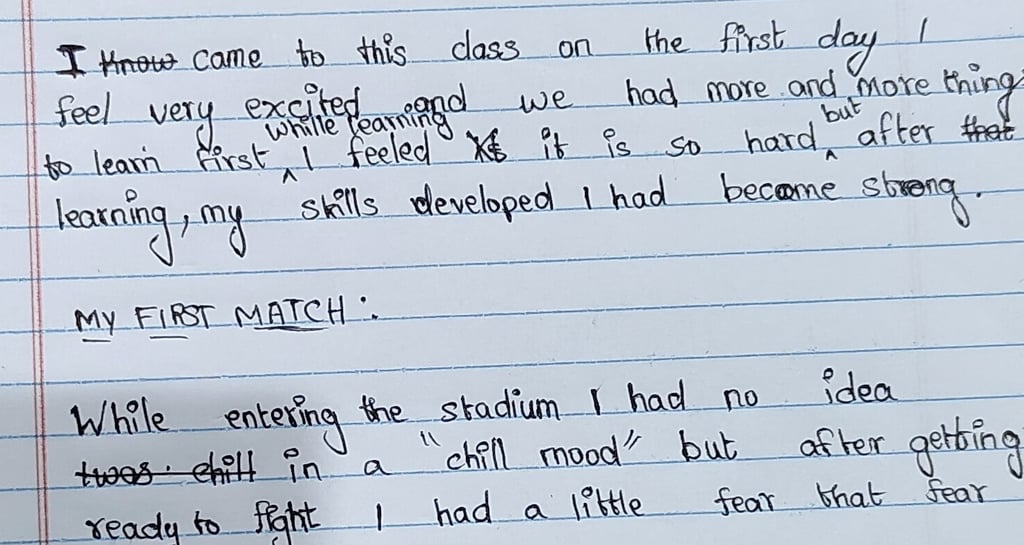 I know came to this class on the first day I
feel very excited and we had more and more thing
to learn first while learning I feeled it is so hard but after that
learning, my skills developed I had become strong.
MY FIRST MATCH :
While entering the stadium I had no idea
twas chill in a "chill mood" but after getting
ready to fight I had a little fear that fear